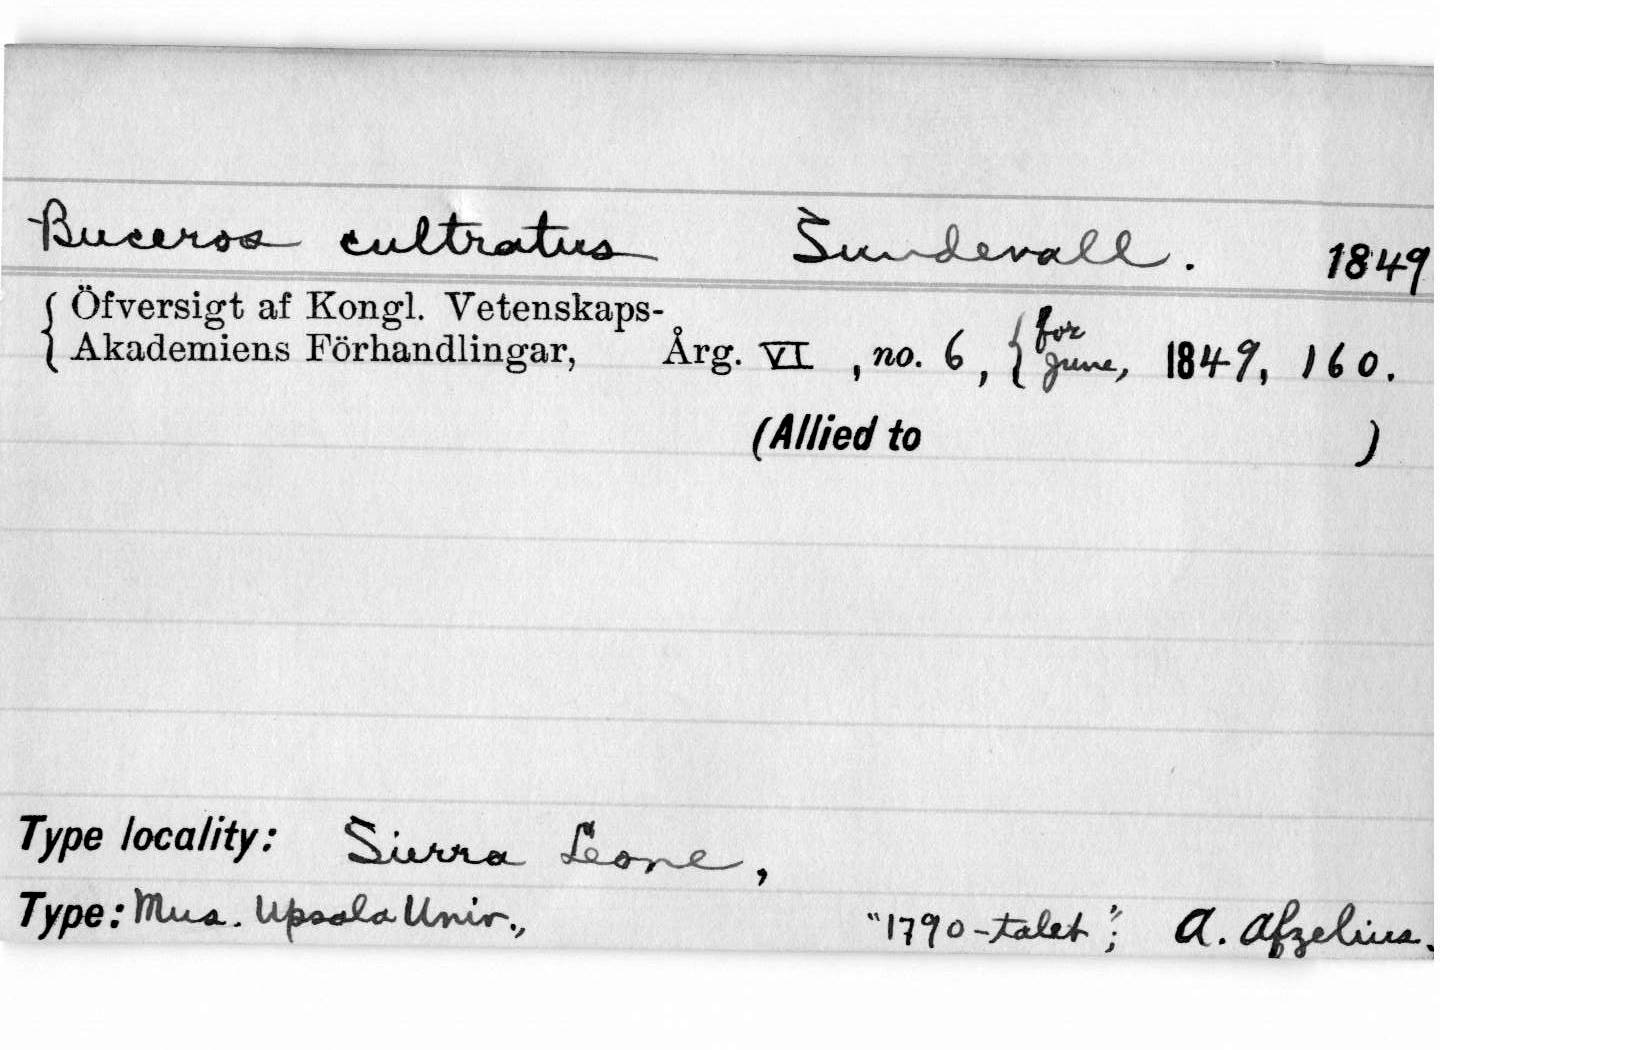 Buceros cultratus Sundevall. 1849
{ Öfversigt af Kongl. Vetenskaps-
Akademiens Förhandlingar, Årg. VI, no. 6, { for June, 1849, 160.
(Allied to )
Type locality: Sierra Leone,
Type: Mus. Upsala Univ., "1790-talet"; A. Afzelius.